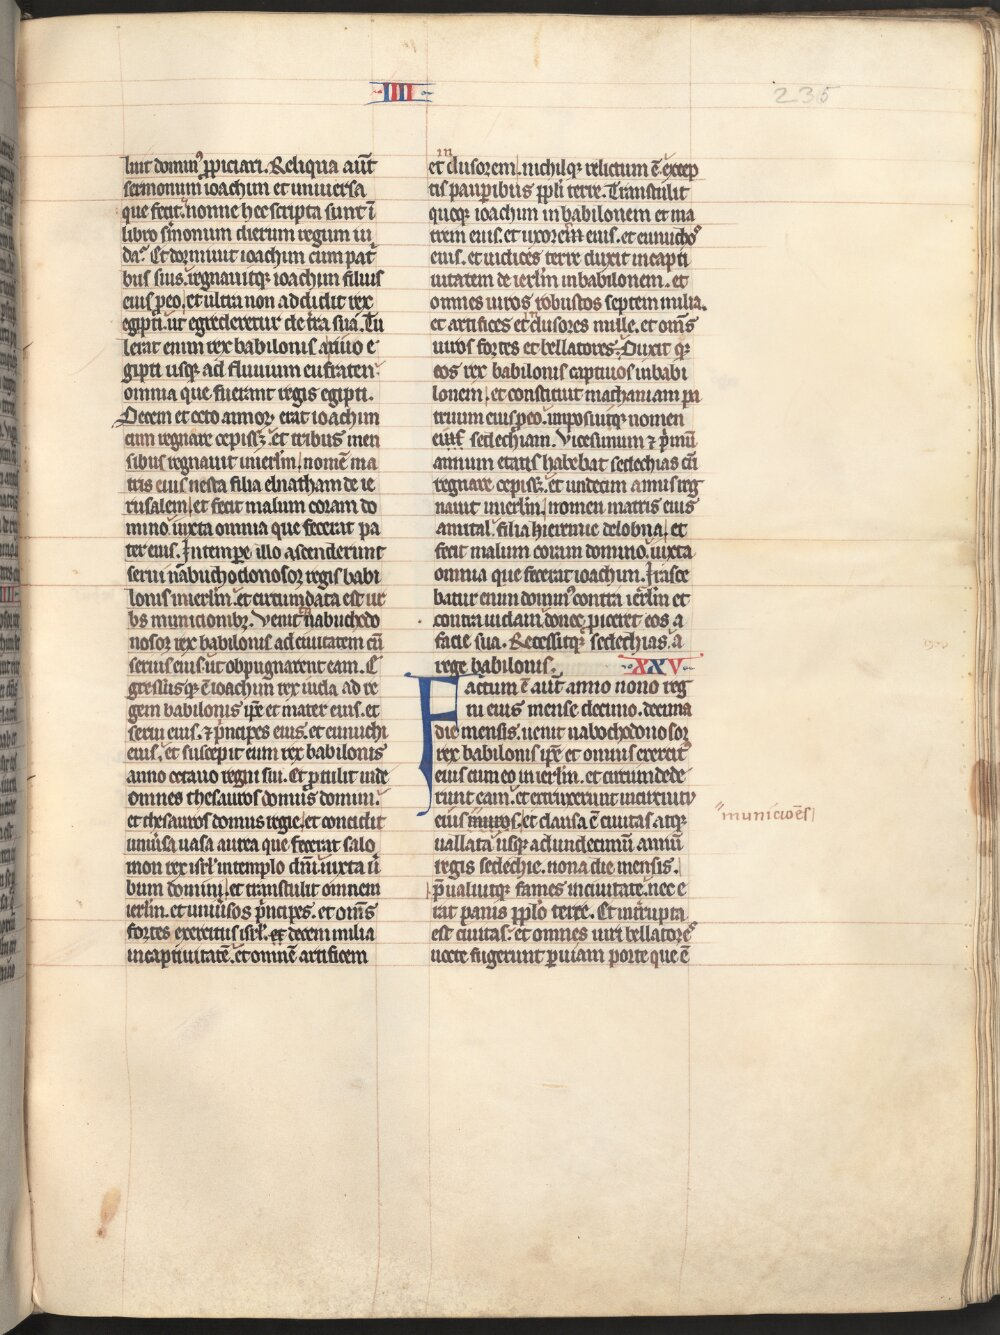 IIII
235
luit dominꝰ ꝓpiciari. Reliqua aut̄
sermonum ioachim et uniuersa
que fecit. nonne hec scripta sunt ī
libro s̄monum dierum regum iu
da. Et dormiuit ioachim cum pat̄
bus suis. regnauitqꝫ ioachim filius
eius ꝑ eo. et ultra non addidit rex
egipti. ut egrederetur de t̄ra sua. Tu
lerat enim rex babilonis a riuo e
gipti usqꝫ ad fluuium eufraten.
omnia que fuerant regis egipti.
Decem et octo annoꝝ erat ioachim
cum regnare cepissꝫ. et tribus men
sibus regnauit in ierl̄m. nomē ma
tris eius nesta filia elnatham de ie
rusalem. et fecit malum coram do
mino. iuxta omnia que fecerat pa
ter eius. In tempe illo ascenderunt
serui nabuchodonosor regis babi
lonis in ierl̄m. et circumdata est ur
bs municionibꝫ. Venit nabuchodo
nosor rex babilonis ad ciuitatem cū
seruis eius ut obpugnarent eam. E
gressusqꝫ ē ioachim rex iuda ad re
gem babilonis ip̄e et mater eius. et
serui eius. ⁊ p̄ncipes eius. et eunuchi
eius. et suscepit eum rex babilonis
anno octauo regni sui. Et ꝓtulit inde
omnes thesauros domus domini.
et thesauros domus regie. et concidit
uniūsa uasa aurea que fecerat salo
mon rex isrl̄ in templo dn̄i. iuxta ū
bum domini. et transtulit omnem
ierl̄m. et uniūsos p̄ncipes. et om̄s
fortes exercitus isrl̄. decem milia
in captiuitatē. et omnē artificem
in
et clusorem. nichilqꝫ relictum ē. excep
tis pauꝑibus ppl̄i terre. Transtulit
quoqꝫ ioachim in babilonem et ma
trem eius. et uxorem eius. et eunuchoꝰ
eius. et iudices terre duxit in capti
uitatem de ierl̄m in babilonem. et
omnes uiros robustos septem milia.
in
et artifices et clusores mille. et om̄s
uiros fortes et bellatores. Duxit qꝫ
eos rex babilonis captiuos in babi
lonem. et constituit mathaniam pa
truum eius ꝑ eo. imposuitqꝫ nomen
ei sedechiam. Vicesimum ⁊ p̄mū
annum etatis habebat sedechias cū
regnare cepissꝫ. et undecim annis reg
nauit in ierl̄m. nomen matris eius
amital. filia hieremie de lobna. et
fecit malum coram domino. iuxta
omnia que fecerat ioachim. Irasce
batur enim dominꝰ contra ierl̄m et
contra iudam donec ꝓiceret eos a
facie sua. Recessitqꝫ sedechias a
rege babilonis. XXV
Factum ē aut̄ anno nono reg
ni eius mense decimo. decima
die mensis. uenit nabochodonosor
rex babilonis ip̄e et omnis exercitꝰ
eius cum eo in ierl̄m. et circumdede
runt eam. et extruxerunt in circuitu
eius muros. et clausa ē ciuitas atqꝫ
municioēs
uallata usqꝫ ad undecimū annū
regis sedechie. nona die mensis.
p̄ualuitqꝫ fames in ciuitate. nec e
rat panis ppl̄o terre. Et int̄rupta
est ciuitas. et omnes uiri bellatoreˢ
nocte fugerunt ꝑ uiam porte que ē